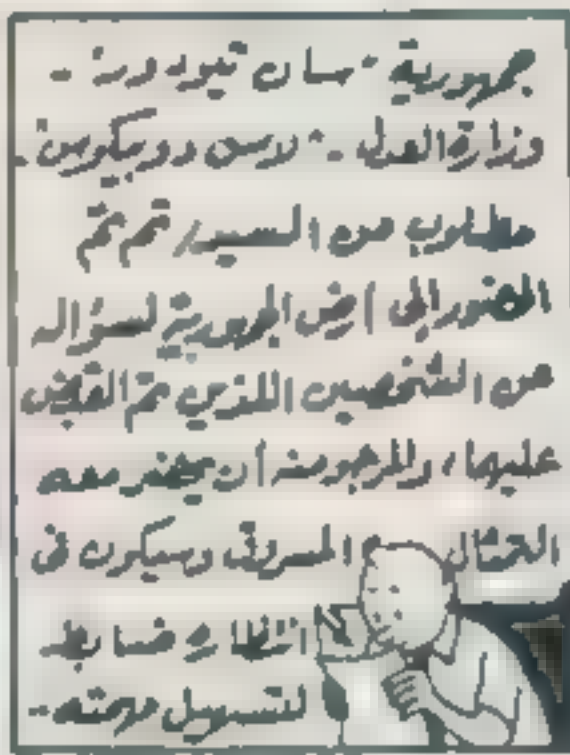 جمهورية "سان تيودورد" -
وزارة العدل - "لاس دوبيكوس" -
مطلوب من السيد / تم تم
الحضور إلى أرض الجمهورية لسؤاله
عن الشخصين اللذين تم القبض
عليهما، والمرجو منه أن يحضر معه
التمثال المسروق وسيكون فى
انتظاره ضابط
لتسهيل مهمته -